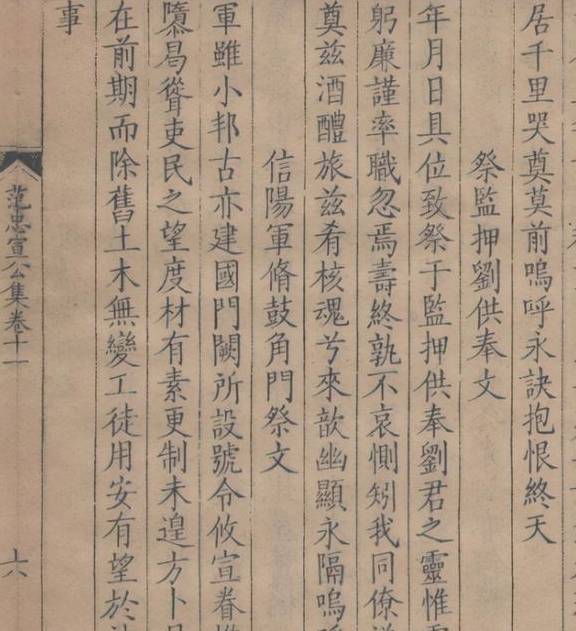 居千里哭奠莫前嗚呼永訣抱恨終天
祭監押劉供奉文
年月日具位致祭于監押供奉劉君之靈惟
躬廉謹率職忽焉壽終孰不哀惻矧我同僚
奠兹酒醴旅兹肴核魂兮來歆幽顯永隔嗚
信陽軍脩鼓角門祭文
軍雖小邦古亦建國門闕所設號令攸宣眷
隳曷聳吏民之望度材有素更制未遑方卜
在前期而除舊土木無變工徒用安有望於
事
范忠宣公集卷十一
六